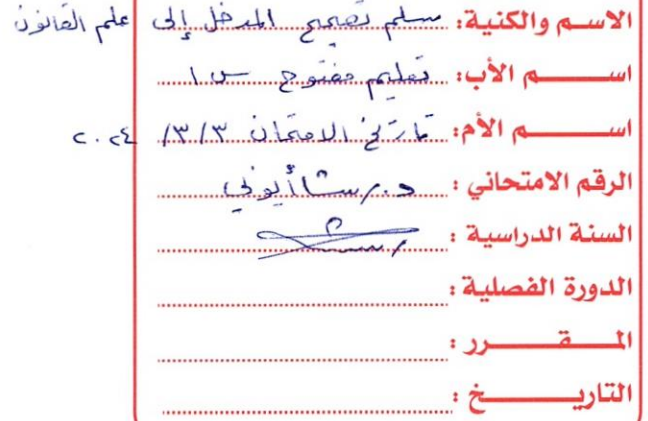 الاسم والكنية: سلم تصحيح المدخل إلى علم القانون
اسم الأب: تعليم مفتوح س١
اسم الأم: تاريخ الامتحان ٣/٣/ ٢٠٢٤
الرقم الامتحاني: د. رشا أيوبي
السنة الدراسية:
الدورة الفصلية:
المقرر:
التاريخ: